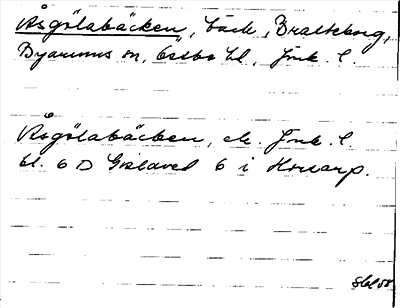 Åsgölabäcken, bäck, Bratteborg,
Byarums sn, Östbo hd, Jönk. l.
Åsgölabäcken, ek. Jönk. l.
bl. 6 D Gislaved 6 i Horarp.